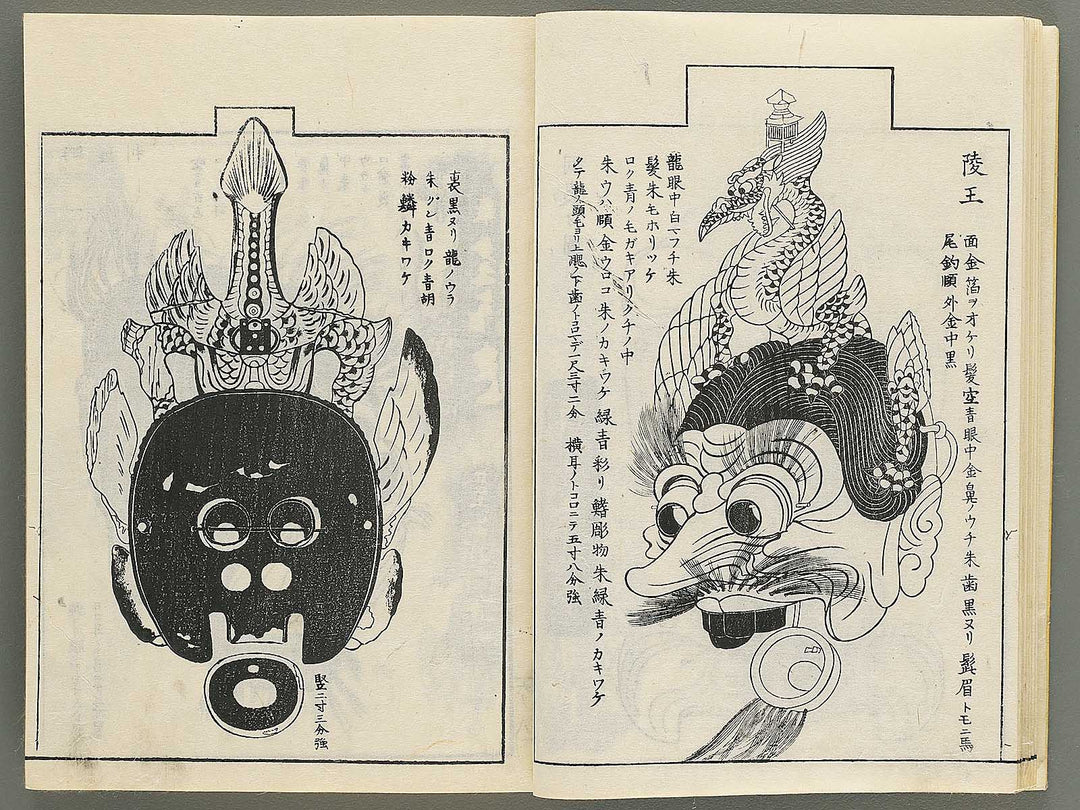 陵王
面金箔ヲオケリ髪空青眼中金鼻ノウチ朱歯黒ヌリ髭眉トモニ馬
尾釣頤外金中黒
龍眼中白ニフチ朱
髪朱モホリツケ
ロク青ノモガキアリクチノ中
朱ウハ頤金ウロコ朱ノカキワケ緑青彩リ鰭彫物朱緑青ノカキワケ
龍ノ頭ヨリ上腮ノ下歯ノトコニデ一尺三寸二分 横耳ノトコロニテ五寸八分強
裏黒ヌリ龍ノウラ
朱グシ青ロク青胡
粉鱗カキワケ
竪二寸三分強